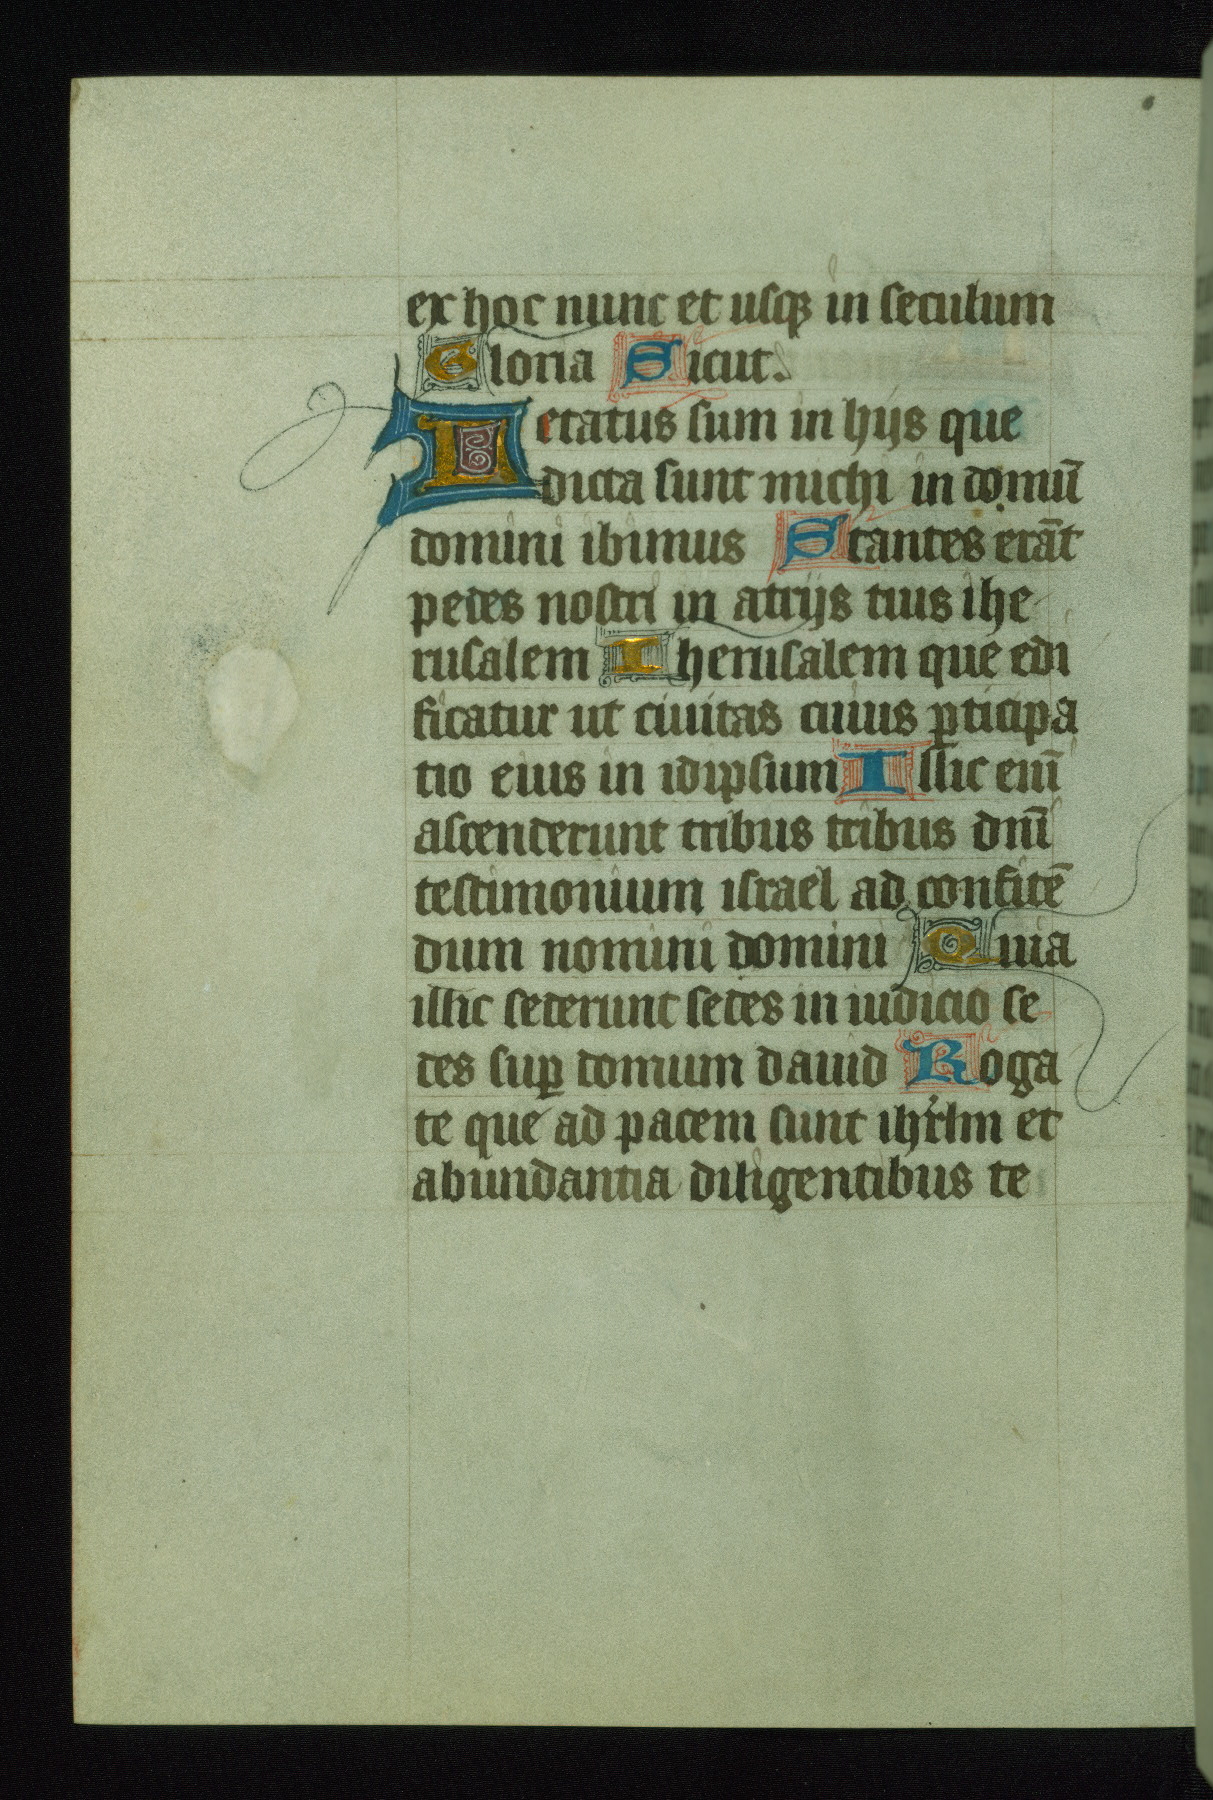 ex hoc nunc et usqꝫ in seculum
Gloria Sicut.
Letatus sum in hijs que
dicta sunt michi in domū
domini ibimus Stantes erāt
pedes nostri in atrijs tuis ihe
rusalem Iherusalem que edi
ficatur ut ciuitas cuius ꝑticipa
tio eius in idipsum Illic enī
ascenderunt tribus tribus dnī
testimonium israel ad confitē
dum nomini domini Quia
illic sederunt sedes in iudicio se
des suꝑ domum dauid Roga
te que ad pacem sunt ihrlm et
abundantia diligentibus te